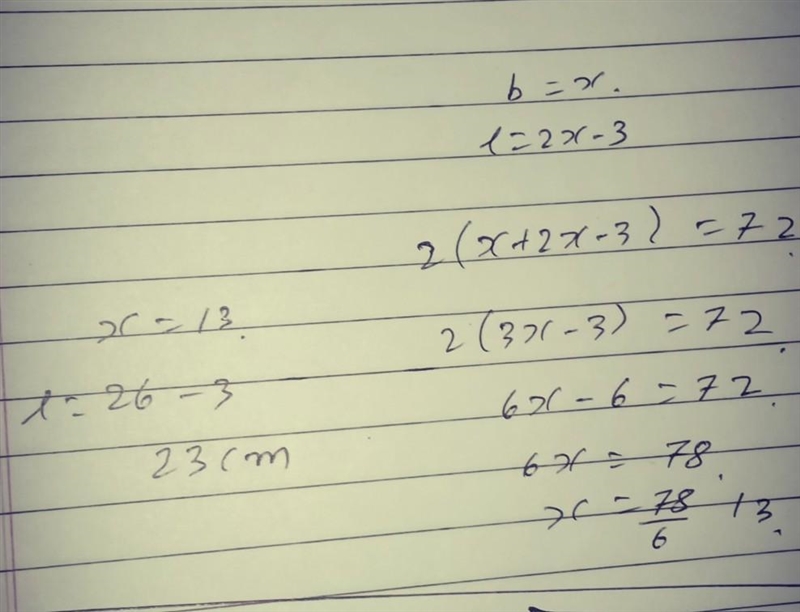 b = x.
l = 2x - 3
2(x + 2x - 3) = 72.
2(3x - 3) = 72.
6x - 6 = 72.
6x = 78.
x = 78/6 13.
x = 13.
l = 26 - 3
23 cm